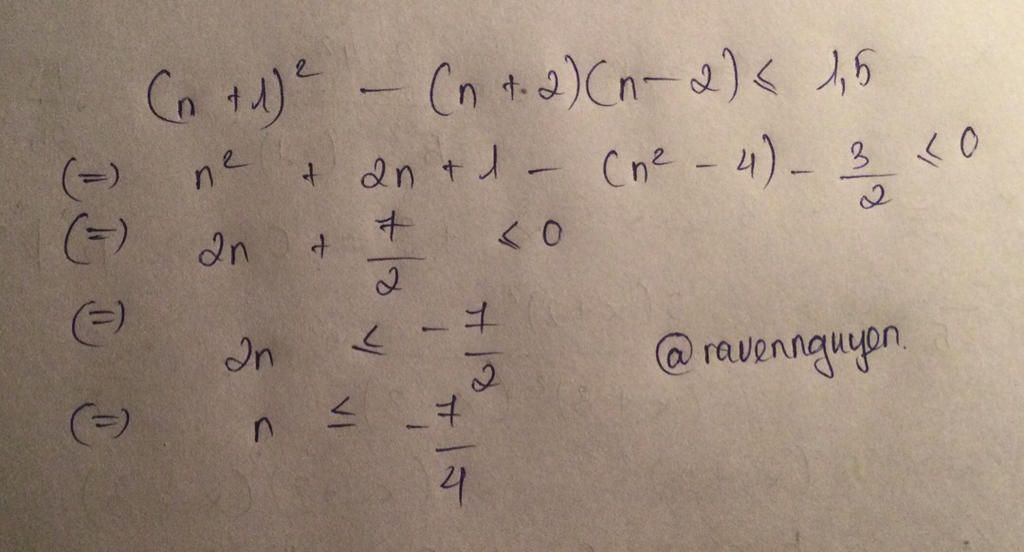 (n + 1)² − (n + 2)(n − 2) ≤ 1,5
(=) n² + 2n + 1 − (n² − 4) − 3/2 ≤ 0
(=) 2n + 7/2 ≤ 0
(=) 2n ≤ −7/2
@ravennguyen.
(=) n ≤ −7/4